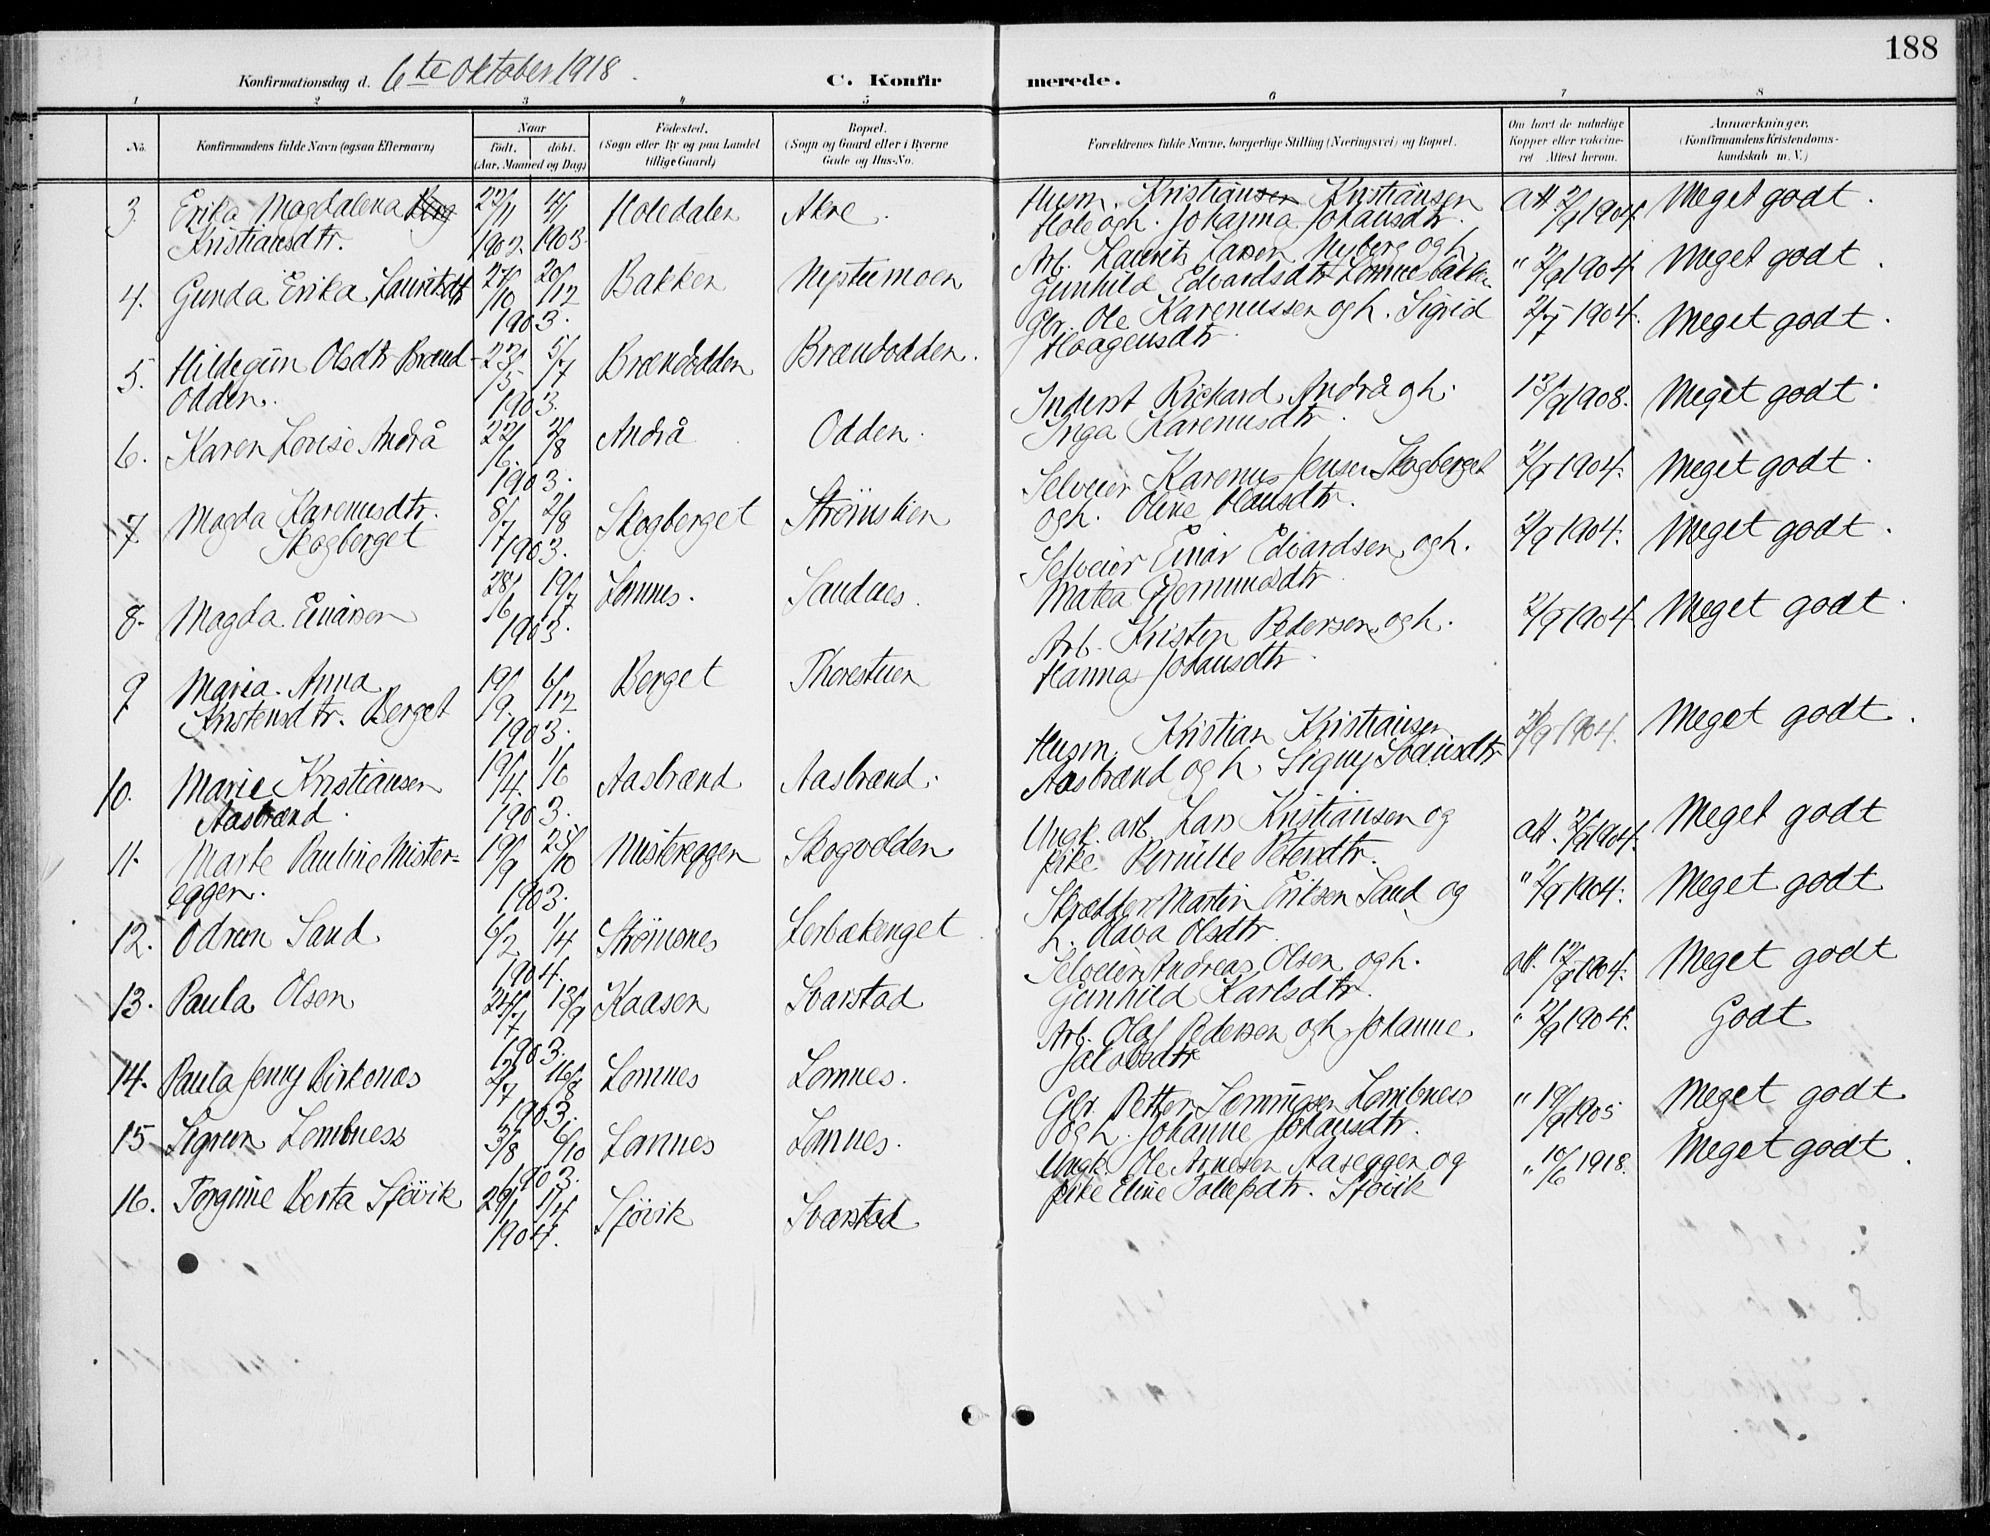 188
Konfirmationsdag d. 6te Oktober 1918.
C. Konfirmerede.
1 2 3 4 5 6 7 8
No.
Konfirmandens fulde Navn (ogsaa Efternavn)
Naar
født. døbt.
(Aar, Maaned og Dag)
Fødested.
(Sogn eller By og paa Landet
tillige Gaard)
Bopæl.
(Sogn og Gaard eller i Byerne
Gade og Hus-No.
Forældrenes fulde Navne, borgerlige Stilling (Næringsvei) og Bopæl.
Om havt de naturlige
Kopper eller vakcine-
ret Attest herom.
Anmærkninger.
(Konfirmandens Kristendoms-
kundskab m. V.)
3. Erika Magdalena Berg 1902 1903 Holedalen Akre. Husm. Kristiansen Kristiansen att 2/9 1904 Meget godt.
Kristiansdtr. Hole og h. Johanna Johansdtr.
4. Gunda Erika Lauritsdtr 27/10 20/12 1903. Bakken Neptumoen Arb. Laurits Larsen Nyberg og h. " 2/9 1904 Meget godt.
Gunhild Edvardsdtr Lomnesbakken
5. Hildegun Olsdtr Brænd- 23/5 5/7 1903. Brændodden Brændodden. Gbr. Ole Karenussen og h. Sigrid 1904. Meget godt.
odden. Haagensdtr.
6. Karen Louise Andrå 22/6 1903. Andrå Odden. Inderst Richard Andrå og h. 13/9 1908. Meget godt.
Inga Karenusdtr.
7. Magda Karenusdtr. 8/7 2/8 1903. Skogberget Strømslien Selveier Karenus Jensen Skogberget 2/9 1904. Meget godt.
Skogberget og h. Oline Hansdtr.
8. Magda Einarsen 28/6 19/7 1903. Lomnes. Sandnes. Selveier Einar Edvardsen og h. 2/9 1904. Meget godt.
Matea Gjermundsdtr
9. Maria Anna 19/9. 6/12 1903. Berget Thorestuen Arb. Kristen Pedersen og h. 2/9 1904 Meget godt.
Kristensdtr. Berget Hanna Johansdtr.
10. Marie Kristiansen 19/4. 1/6 1903. Aasbrænd Aasbrænd. Husm. Kristian Kristiansen 2/9 1904. Meget godt.
Aasbrænd. Aasbrænd og h. Signy Svensdtr
11. Marte Pauline Mister= 19/9 25/10 1903. Mistereggen Skogvolden Ungk. arb. Lars Kristiansen og att. 2/9 1904. Meget godt
eggen. pike Pernille Petersdtr.
12. Odrun Sand 6/2 1/4 1904. Strømsnes Lerbækenget Skrædder Martin Eriksen Sand og " 2/9 1904. Meget godt
h. Olava Olsdtr.
13. Paula Olsen 24/7 13/9 1903. Kaasen Svarstad Selveier Andreas Olsen og h. att. 1904. Meget godt
Gunhild Karlsdtr.
14. Paula Jenny Birkenæs 16/8 1903. Lomnes Lomnes. Arb. Olaf Pedersen og h. Johanne " 2/9 1904. Godt
Jakobsdtr
15 Sigrun Lombness 5/8 6/10 1903. Lomnes Lomnes. Gbr. Petter Semmingsen Lombness " 19/9 1905 Meget godt
og h. Johanne Johansdtr.
16. Torgine Berta Sjøvik 29/1 1/4 1904. Sjøvik Svarstad Ungk. Ole Arnesen Aaseggen og " 10/6 1918. Meget godt.
pike Eline Tollefsdtr. Sjøvik